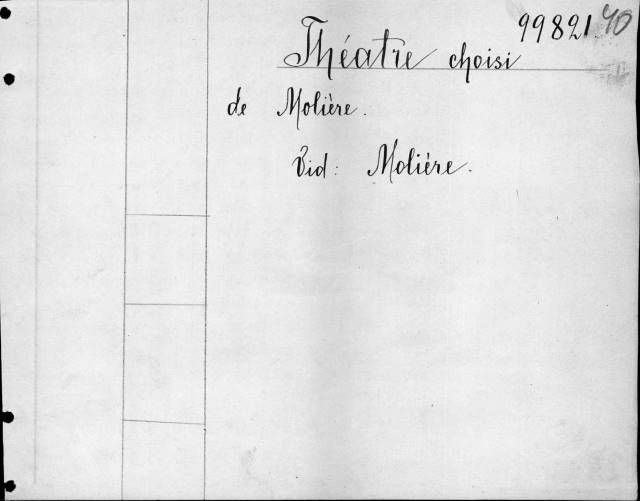 99821. 40
Théatre choisi
de Molière.
Vid: Molière.